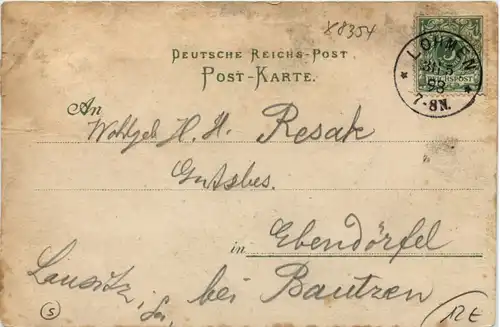 88354
DEUTSCHE REICHS-POST
POST-KARTE.
LOHMEN
31 5
98
7-8N.
REICHSPOST
An
Wohlgeb H. H. Resak
Gutsbes.
in Ebendörfel
Lausitz i. Sa. bei Bautzen
S
12E